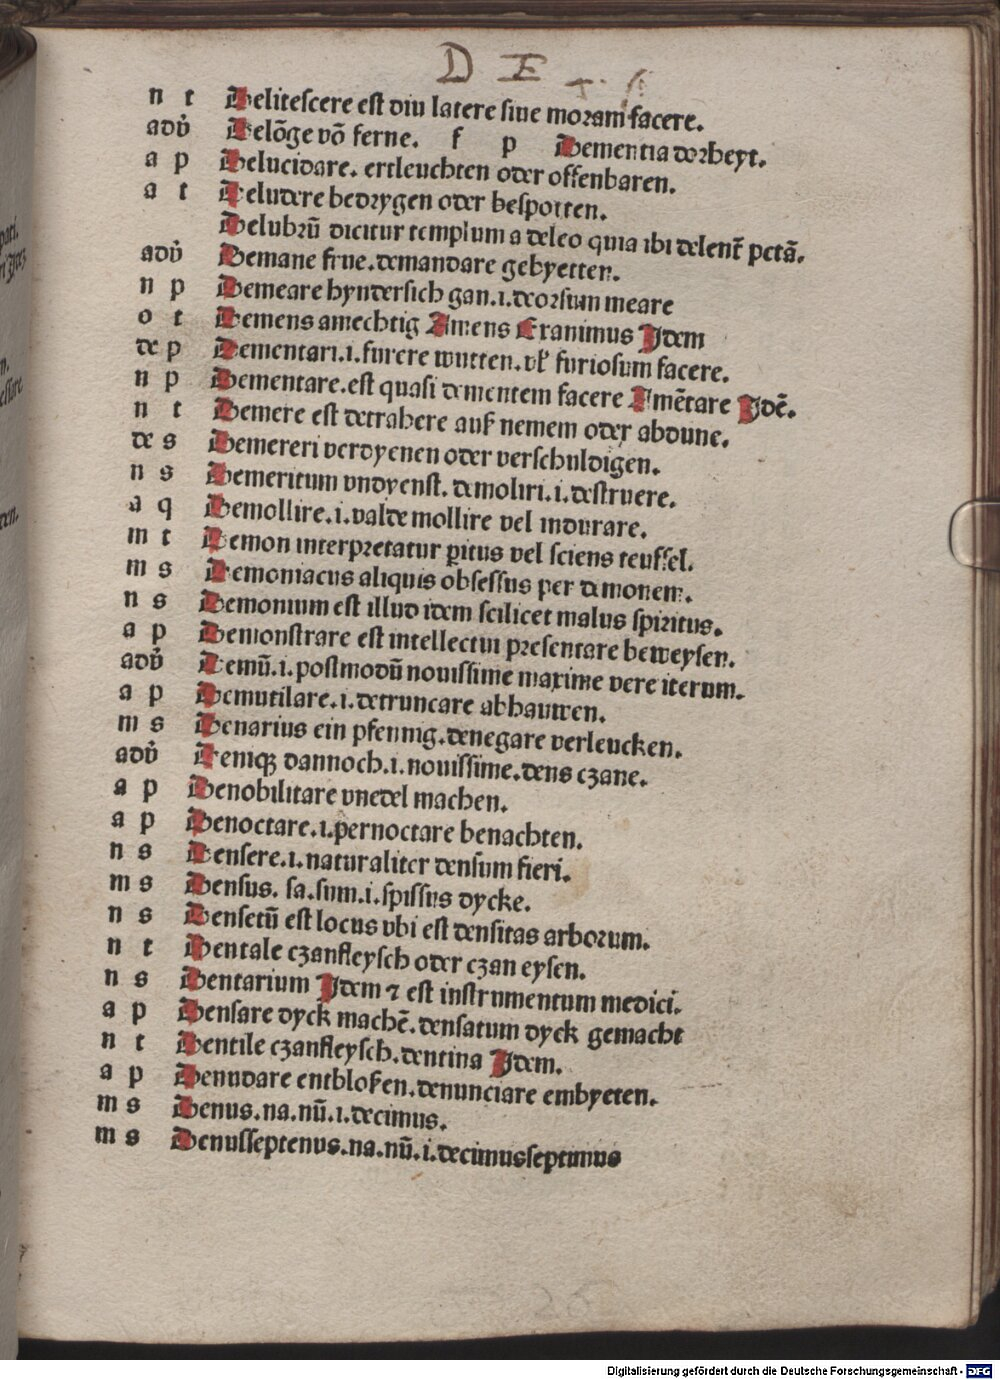 D E
n t Delitescere est diu latere siue moram facere.
adv̄ Delōge vō ferne. f p Dementia dorheyt.
a p Delucidare. erleuchten oder offenbaren.
a t Deludere bedrygen oder bespotten.
Delubrū dicitur templum a deleo quia ibi delent̄ pctā.
adv̄ Demane frue. demandare gebyetten.
n p Demeare hyndersich gan .i. deorsum meare
o t Demens amechtig Amens Exanimus Idem
de p Dementari .i. furere wutten. vl̄ furiosum facere.
n p Dementare. est quasi dementem facere Amētare Idē.
n t Demere est detrahere auff nemem oder abdune.
de s Demereri verdyenen oder verschuldigen.
n s Demeritum vndyenst. demoliri .i. destruere.
a q Demollire .i. valde mollire vel indurare.
m t Demon interpretatur ꝑitus vel sciens teuffel.
m s Demoniacus aliquis obsessus per demonem.
n s Demonium est illud idem scilicet malus spiritus.
a p Demonstrare est intellectui presentare beweysen.
adv̄ Demū .i. postmodū nouissime maxime vere iterum.
a p Demutilare .i. detruncare abhauwen.
m s Denarius ein pfennig. denegare verleucken.
adv̄ Deniqꝫ dannoch .i. nouissime. dens czane.
a p Denobilitare vnedel machen.
a p Denoctare .i. pernoctare benachten.
n s Densere .i. naturaliter densum fieri.
m s Densus. sa. sum .i. spissus dycke.
n s Densetū est locus vbi est densitas arborum.
n t Dentale czanfleysch oder czan eysen.
n s Dentarium Idem ⁊ est instrumentum medici.
a p Densare dyck machē. densatum dyck gemacht
n t Dentile czanfleysch. dentina Idem.
a p Denudare entblosen. denunciare embyeten.
m s Denus. na. nū .i. decimus.
m s Denusseptenus. na. nū .i. decimusseptimus
Digitalisierung gefördert durch die Deutsche Forschungsgemeinschaft - DFG